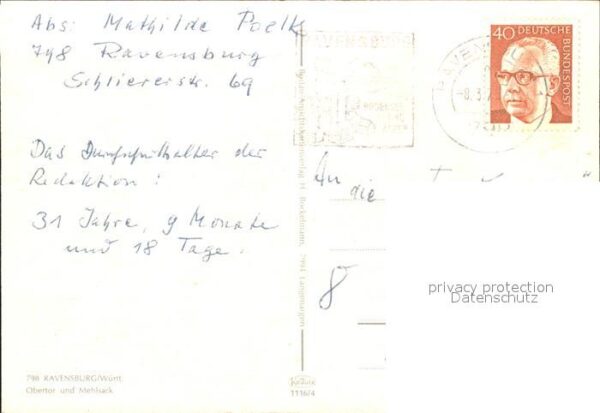 Abs: Mathilde Poelk
798 Ravensburg
Schliererstr. 69
Das Durchschnittsalter der
Redaktion:
31 Jahre, 9 Monate
und 18 Tage.
An
die
8
40 DEUTSCHE
BUNDESPOST
RAVENSBURG
privacy protection
Datenschutz
798 RAVENSBURG/Württ.
Obertor und Mehlsack
1116/4